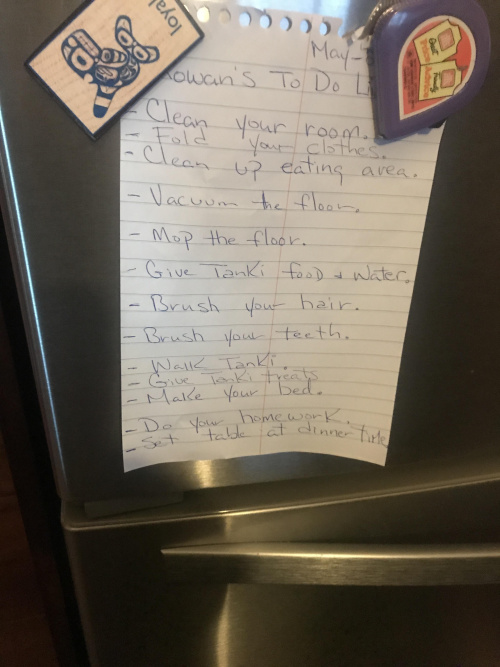 loyal
May-
owan's To Do Li
- Clean your room.
- Fold your clothes.
- Clean up eating area.
- Vacuum the floor.
- Mop the floor.
- Give Tanki food & water.
- Brush your hair.
- Brush your teeth.
- Walk Tanki.
- Give Tanki treats
- Make your bed.
- Do your homework.
- Set table at dinner time